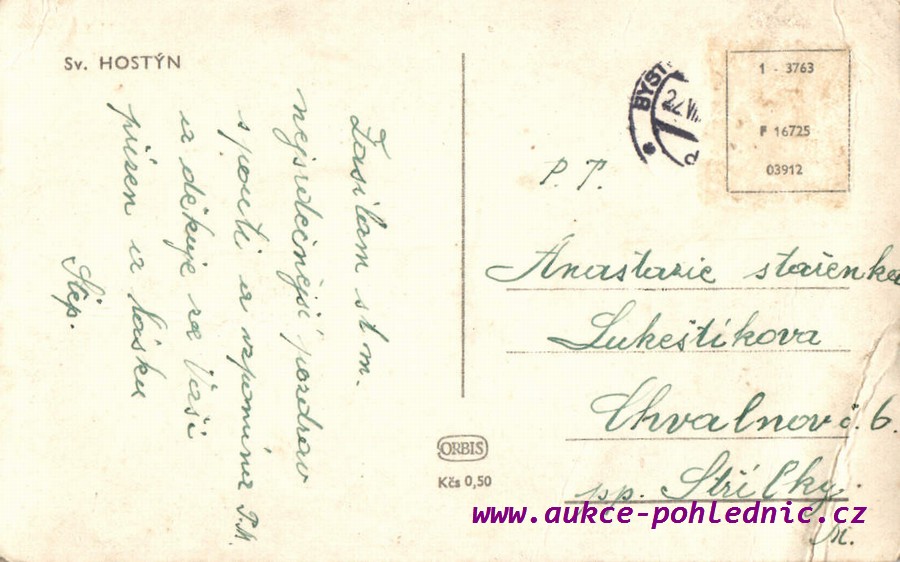 Sv. HOSTÝN
Zasílám st m.
nejsrdečnější pozdrav
s pouti a vzpomínu P. M.
a děkuje za Vaši
přízen a lásku
Štěp.
BYST
22.VII
1 - 3763
F 16725
03912
P. T.
Anastazie stařenka
Lukeštíkova
Chvalnov č. 6.
pp. Střílky.
M.
ORBIS
Kčs 0,50
www.aukce-pohlednic.cz